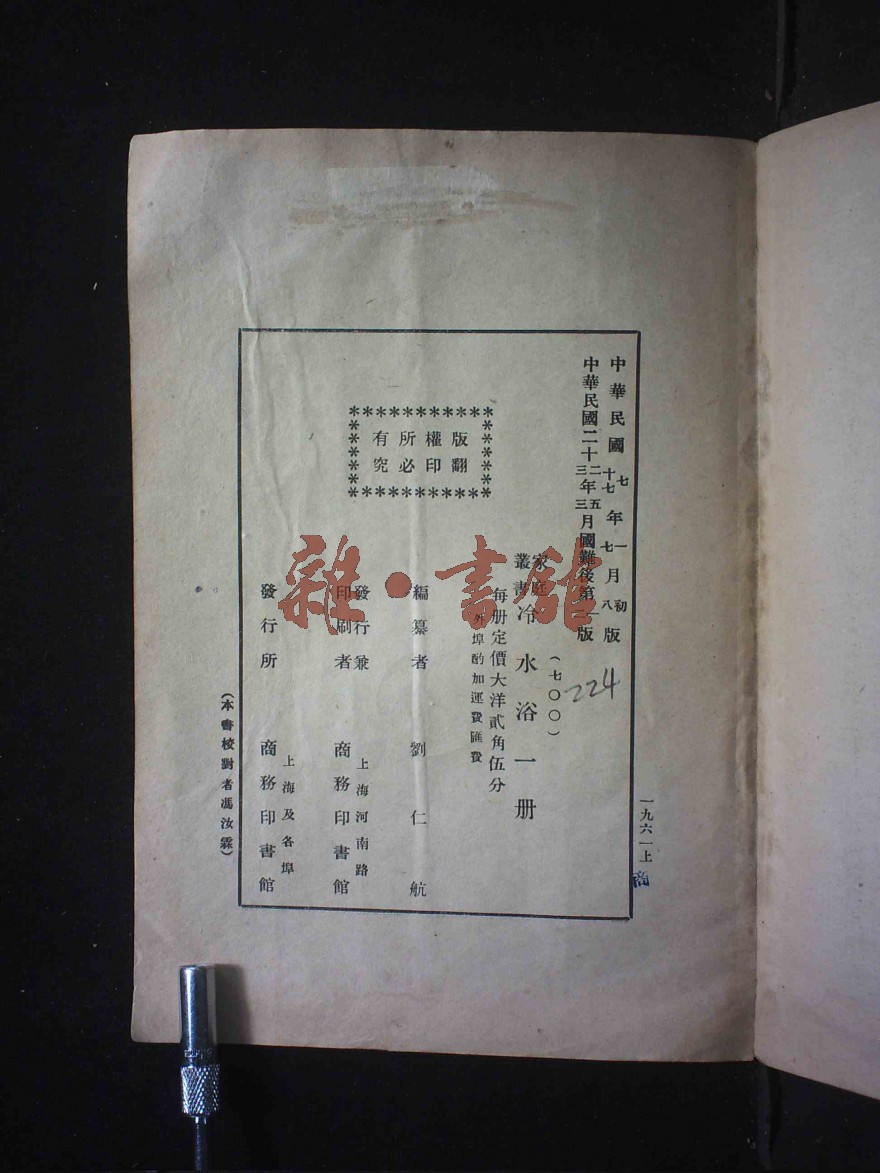 一九六一上
商
中華民國七十七年一七月初八版
中華民國二十二三年五三月國難後第一版
(七〇〇)
224
家庭叢書冷水浴一册
每册定價大洋貳角伍分
外埠酌加運費匯費
版權所有
翻印必究
編纂者 劉仁航
發行兼印刷者 上海河南路 商務印書館
發行所 上海及各埠 商務印書館
(本書校對者馮汝霖)
雜·書館